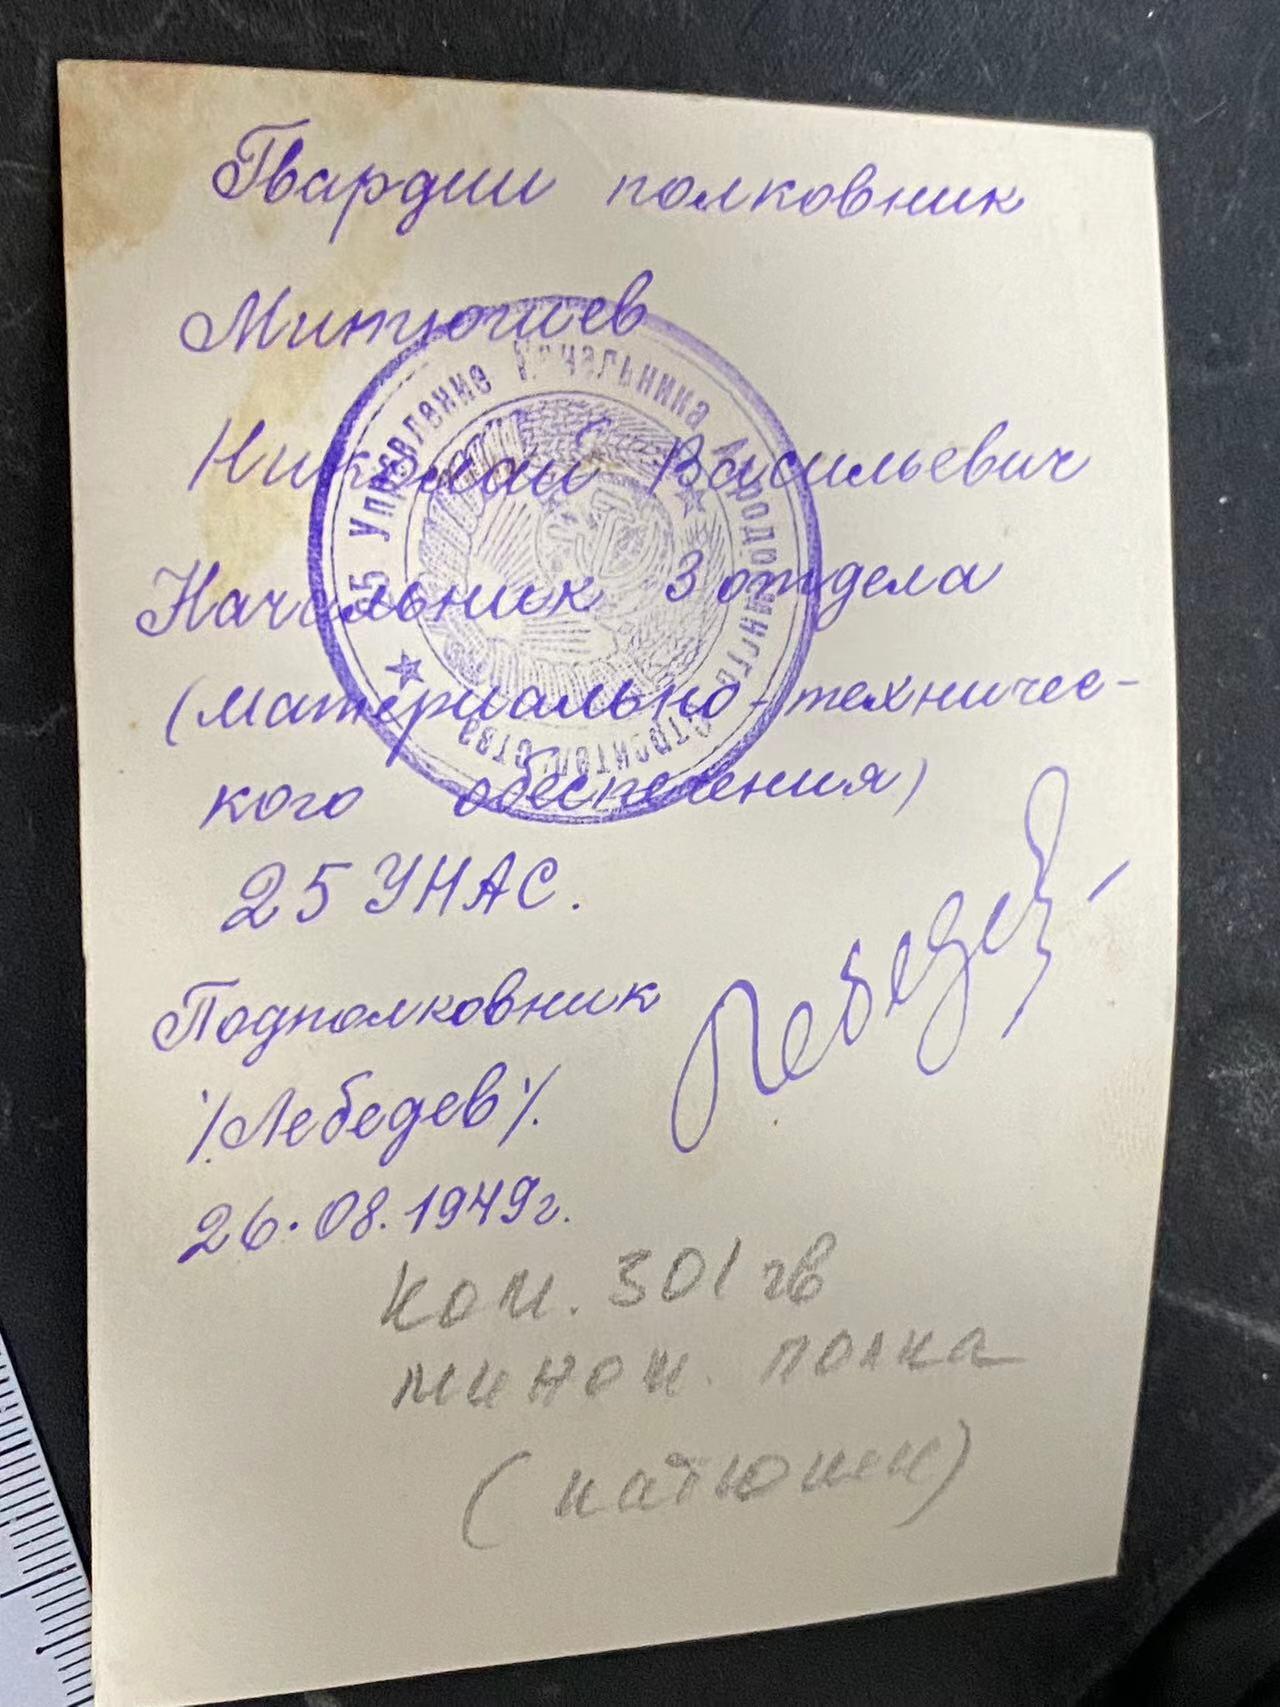 Гвардии полковник
Митюшев
Николай Васильевич
Начальник 3 отдела
(материально-техничес-
кого обеспечения)
25 УНАС.
25 Управление Начальника Аэродромного Строительства
Подполковник
/Лебедев/.
Лебедев
26.08.1949г.
Ком. 301 гв
мином. полка
(катюши)